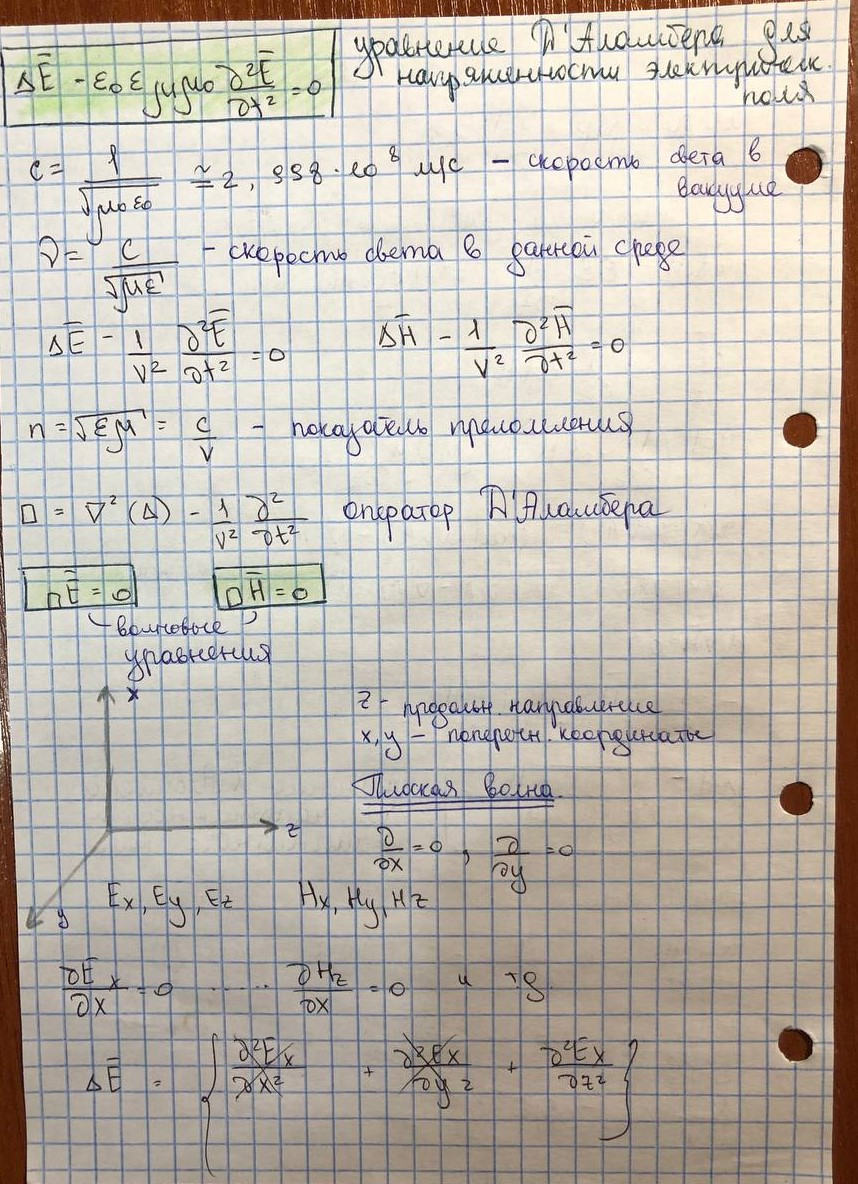 ΔĒ - ε₀ε μμ₀ ∂²Ē/∂t² = 0
уравнение Д'Аламбера для
напряженности электрическ.
поля
c = 1/√(μ₀ε₀) ≃ 2,998·10⁸ м/с – скорость света в
вакууме
ν = c/√(με) – скорость света в данной среде
ΔĒ - 1/v² ∂²Ē/∂t² = 0 ΔH̄ - 1/v² ∂²H̄/∂t² = 0
n = √(εμ) = c/v – показатель преломления
□ = ∇²(Δ) - 1/v² ∂²/∂t² оператор Д'Аламбера
□Ē = 0 □H̄ = 0
волновые
уравнения
x
z - продольн. направление
x, y – поперечн. координаты
Плоская волна.
z
∂/∂x = 0, ∂/∂y = 0
y
Ex, Ey, Ez Hx, Hy, Hz
∂Ex/∂x = 0 ...... ∂Hz/∂x = 0 и тд.
ΔĒ = { ∂²Ex/∂x² + ∂²Ex/∂y² + ∂²Ex/∂z² }